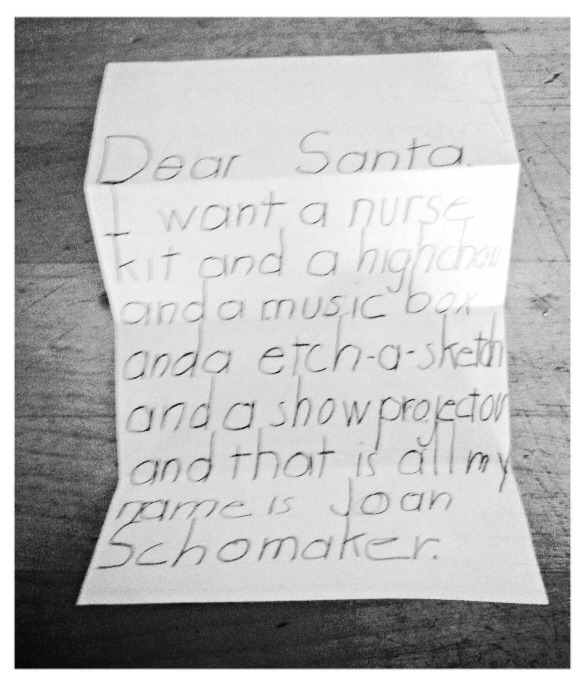 Dear Santa.
I want a nurse
kit and a highchair
and a music box
and a etch-a-sketch
and a show projector
and that is all my
name is Joan
Schomaker.